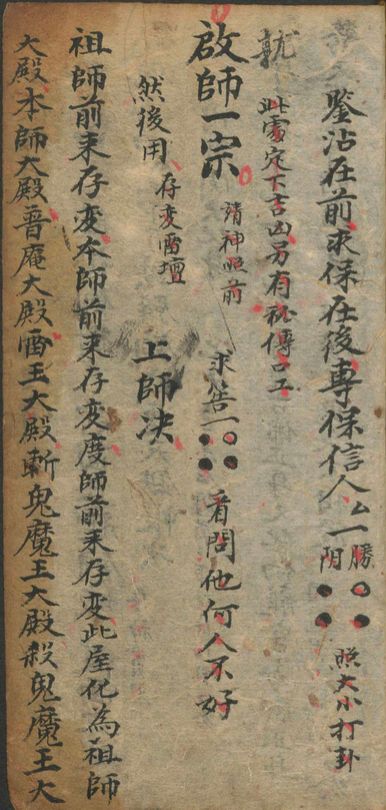 鑒沾在前求保在後專保信人厶一勝○●阴●●照大小打卦
就此處定下吉凶另有祕傳口工
啟師一宗○請神照前求筶一○●●●看問他何人不好
然後用存変雷壇上師决
祖師前来存変本師前来存変度師前来存変此屋化為祖師
大殿本師大殿晋庵大殿酉王大殿斬鬼魔王大殿殺鬼魔王大